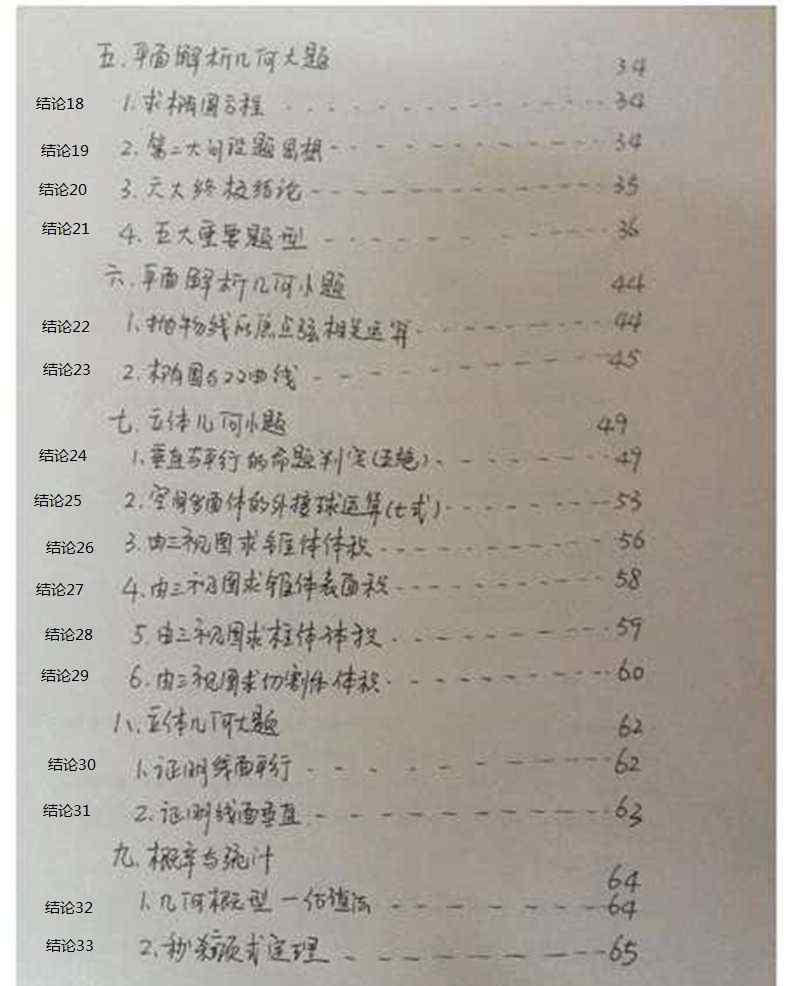 五.平面解析几何大题 34
结论18 1.求椭圆方程 34
结论19 2.第二大问设题思想 34
结论20 3.六大终极结论 35
结论21 4.五大重要题型 36
六.平面解析几何小题 44
结论22 1.抛物线的焦点弦相关运算 44
结论23 2.椭圆与双曲线 45
七.立体几何小题 49
结论24 1.垂直与平行的命题判定(五绝) 49
结论25 2.空间多面体的外接球运算(七式) 53
结论26 3.由三视图求锥体体积 56
结论27 4.由三视图求锥体表面积 58
结论28 5.由三视图求柱体体积 59
结论29 6.由三视图求切割体体积 60
八.立体几何大题 62
结论30 1.证明线面平行 62
结论31 2.证明线面垂直 63
九.概率与统计 64
结论32 1.几何概型一估值法 64
结论33 2.秒杀 定理 65